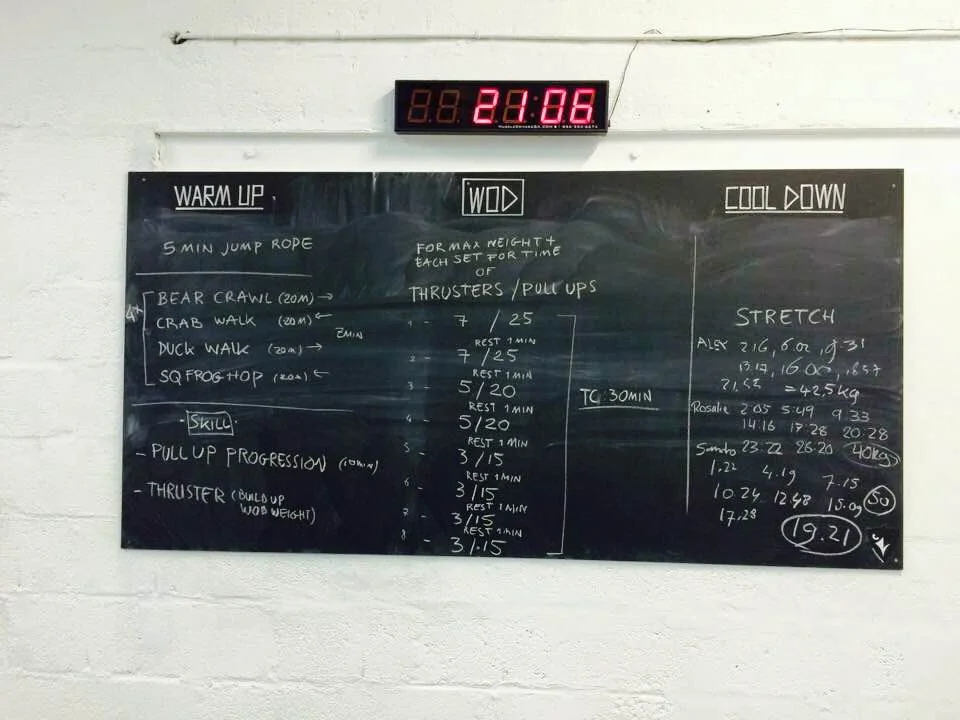 21:06
WARM UP
5 MIN JUMP ROPE
4x
BEAR CRAWL (20M) →
CRAB WALK (20M) ←
2MIN
DUCK WALK (20M) →
SQ FROG HOP (20M) ←
SKILL
- PULL UP PROGRESSION (10MIN)
- THRUSTER (BUILD UP
WOD WEIGHT)
WOD
FOR MAX WEIGHT +
EACH SET FOR TIME
OF
THRUSTERS / PULL UPS
1 - 7 / 25
REST 1 MIN
2 - 7 / 25
REST 1 MIN
3 - 5 / 20
REST 1 MIN
4 - 5 / 20
REST 1 MIN
5 - 3 / 15
REST 1 MIN
6 - 3 / 15
REST 1 MIN
7 - 3 / 15
REST 1 MIN
8 - 3 / 15
TC: 30MIN
COOL DOWN
STRETCH
ALEX 2.16, 6.02, 9.31
13.17, 16.00,
= 42,5 kg
Rosalie 2:05 5:49 9:33
14:16 17:28 20:28
23:22 26:20 40kg
Sandro
1.22 4.19 7.15
10.24 12.48 15.09 50
17.28
19.21